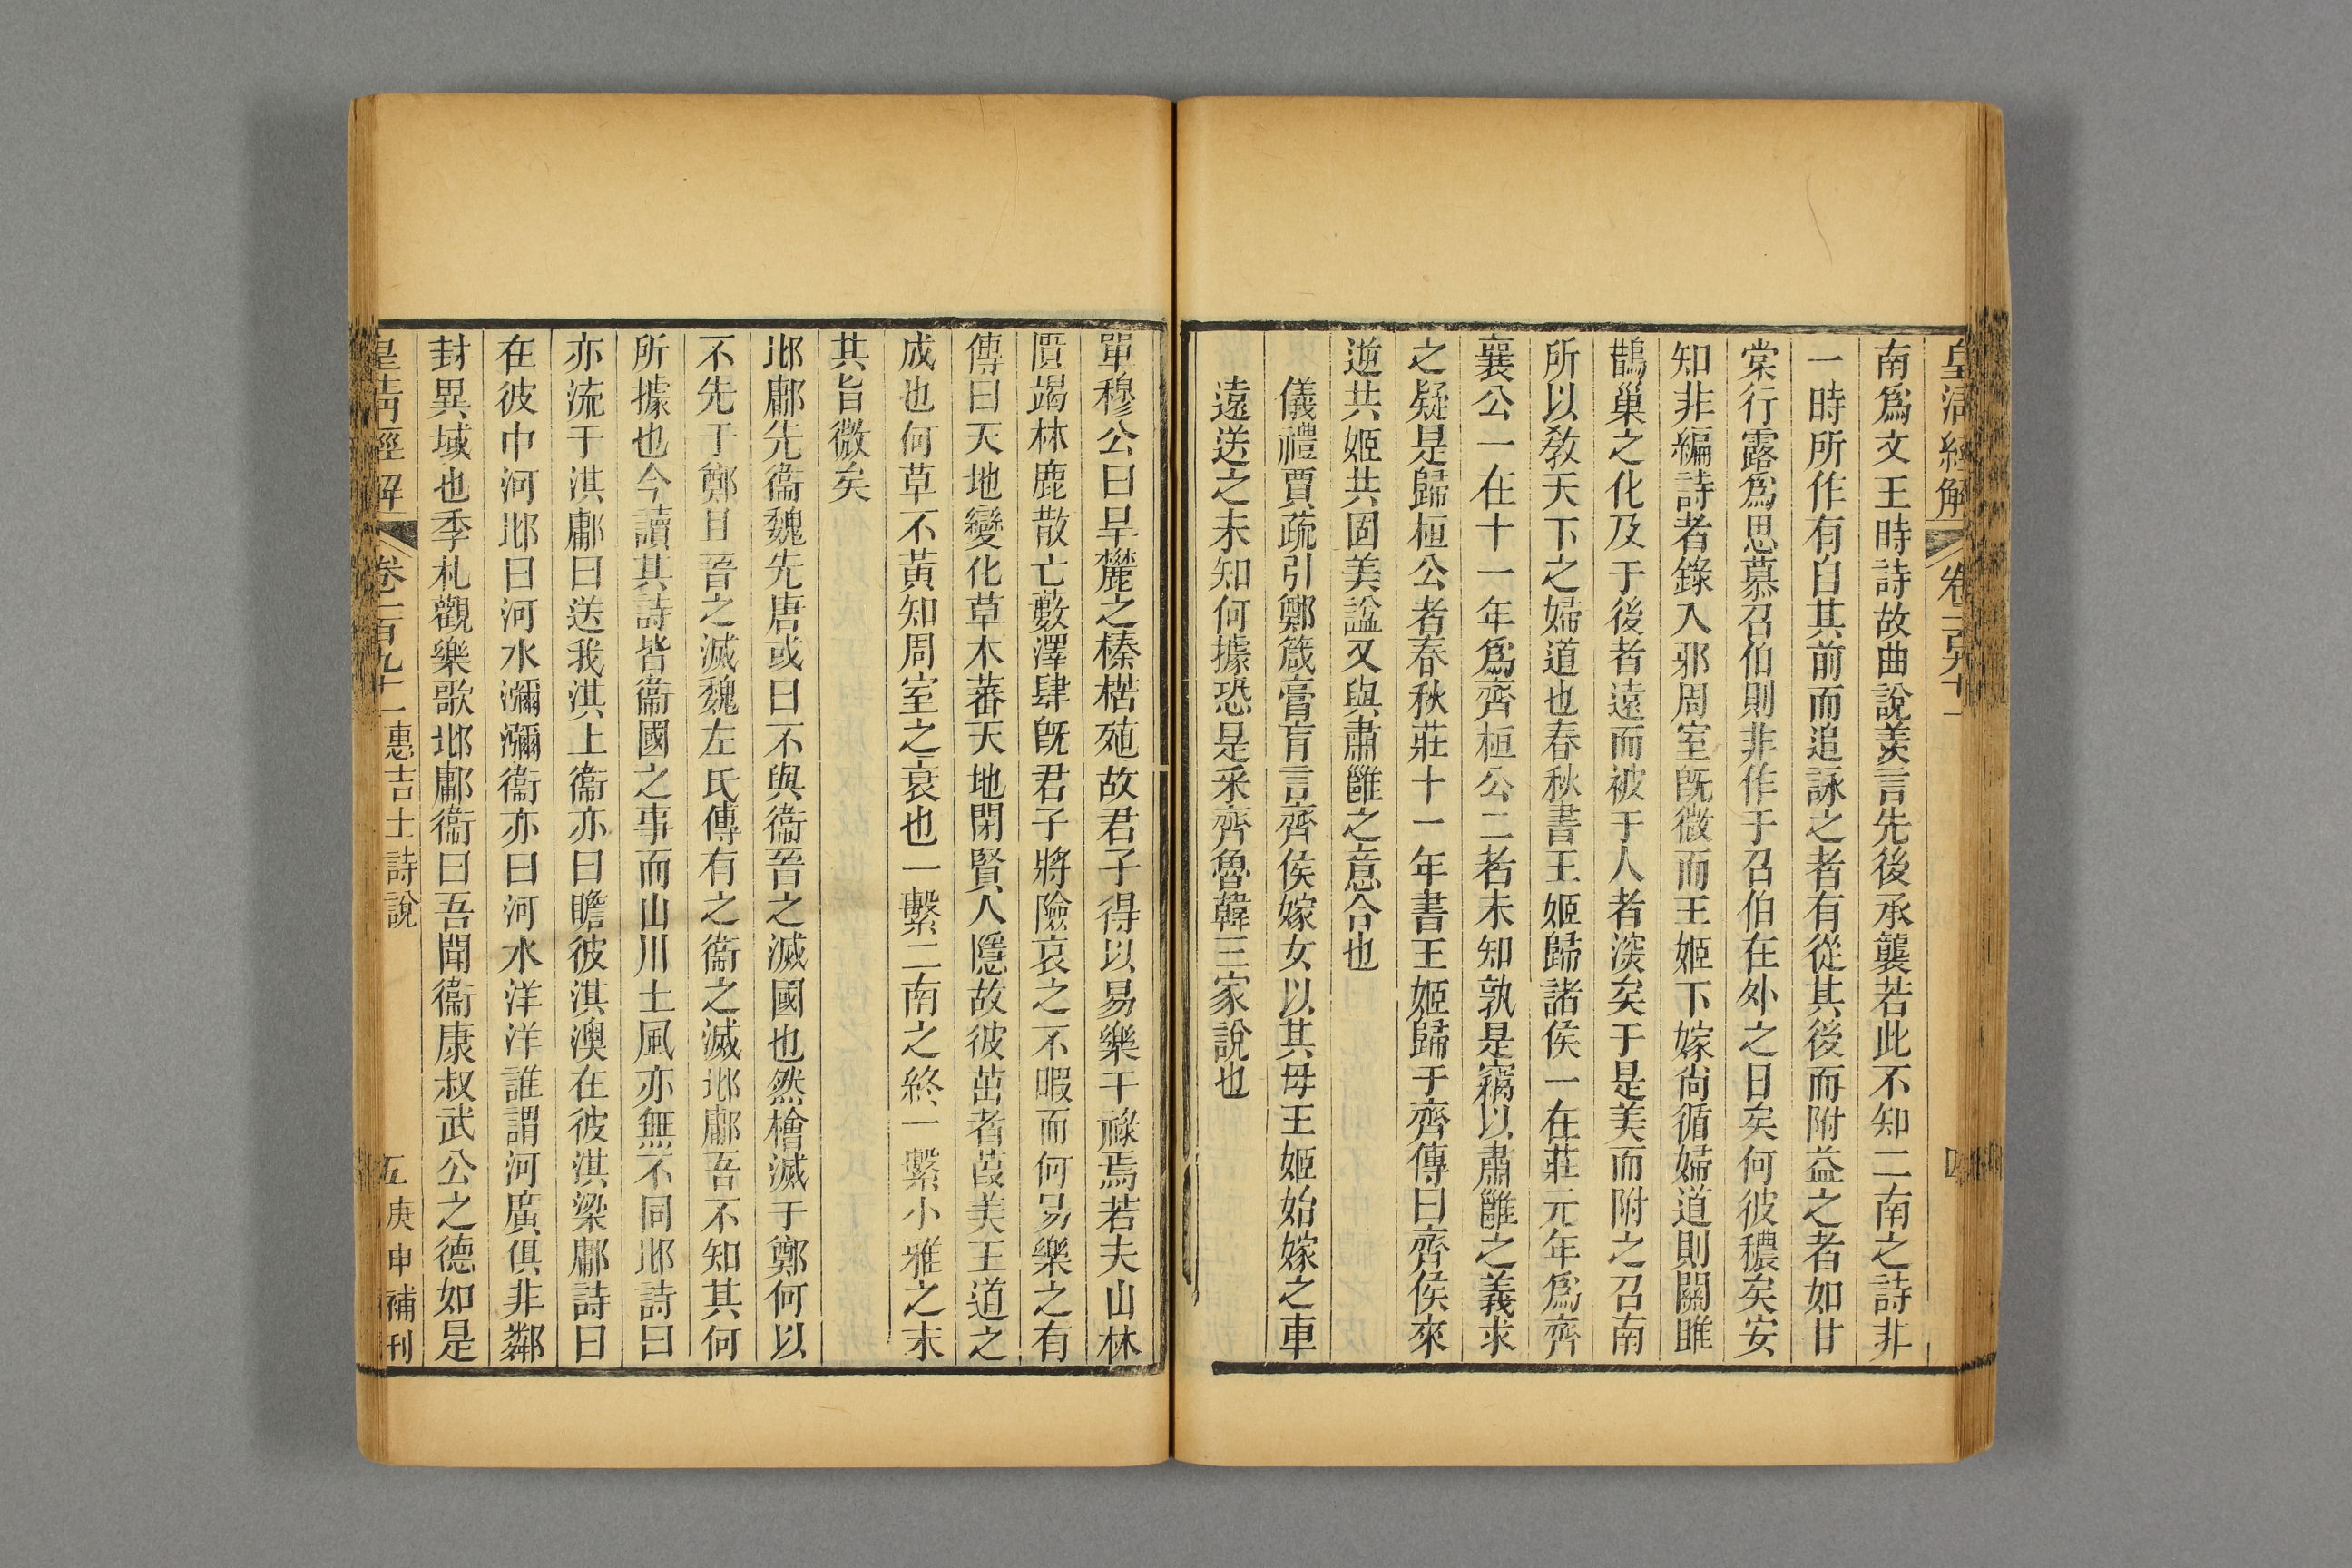 皇清經解 卷二百九十一 四
南爲文王時詩故曲說羙言先後承襲若此不知二南之詩非
一時所作有自其前而追詠之者有從其後而附益之者如甘
棠行露爲思慕召伯則非作于召伯在外之日矣何彼穠矣安
知非編詩者錄入邪周室旣微而王姬下嫁尙循婦道則關雎
鵲巢之化及于後者遠而被于人者深矣于是美而附之召南
所以敎天下之婦道也春秋書王姬歸諸侯一在莊元年爲齊
襄公一在十一年爲齊桓公二者未知孰是竊以肅雝之義求
之疑是歸桓公者春秋莊十一年書王姬歸于齊傳曰齊侯來
逆共姬共固美諡又與肅雝之意合也
儀禮賈疏引鄭箴膏肓言齊侯嫁女以其母王姬始嫁之車
遠送之未知何據恐是采齊魯韓三家說也
單穆公曰旱麓之榛楛殖故君子得以易樂干祿焉若夫山林
匱竭林鹿散亡藪澤肆旣君子將險哀之不暇而何易樂之有
傳曰天地變化草木蕃天地閉賢人隱故彼茁者葭美王道之
成也何草不黃知周室之衰也一繫二南之終一繫小雅之末
其旨微矣
邶鄘先衞魏先唐或曰不與衞晉之滅國也然檜滅于鄭何以
不先于鄭且晉之滅魏左氏傳有之衞之滅邶鄘吾不知其何
所據也今讀其詩皆衞國之事而山川土風亦無不同邶詩曰
亦流于淇鄘曰送我淇上衞亦曰瞻彼淇澳在彼淇梁鄘詩曰
在彼中河邶曰河水瀰瀰衞亦曰河水洋洋誰謂河廣俱非鄰
封異域也季札觀樂歌邶鄘衞曰吾聞衞康叔武公之德如是
皇清經解 卷二百九十一 惠吉士詩說 五 庚申補刊